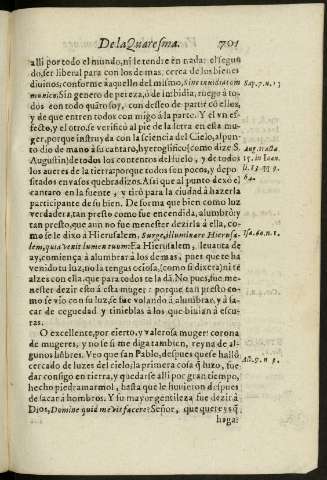 De la Quaresma. 701
alli por todo el mundo, ni le tendre en nada: el segun
do, ser liberal para con los demas, cerca de los bienes
diuinos; conforme a aquello del mismo, Sine inuidia com
munico, Sin genero de pereza, ò de imbidia, ruego a to-
dos con todo quāto soy, con desseo de partir cō ellos,
y de que entren todos con migo á la parte. Y el vn es-
fecto, y el otro se verificò al pie de la letra en esta mu-
ger, porque instruyda con la sciencia del Cielo, al pun-
to dio de mano à su cantaro, hyeroglifico (como dize S.
Augustin) de todos los contentos del suelo, y de todos
los aueres de la tierra: porque todos son pocos, y depo
sitados en vasos quebradizos. Assi que al punto dexò el
cantaro en la fuente, y tirò para la ciudad à hazerla
participante de su bien. De forma que bien como luz
verdadera, tan presto como fue encendida, alumbrò; y
tan presto, que aun no fue menester dezirla á ella, co-
mo se le dixo à Hierusalem, Surge, illuminare Hierusa-
lem, quia venit lumen tuum: Ea Hierusalem, leuanta de
ay, comiença à alumbrar à los demas, pues que te ha
venido tu luz, no la tengas ociosa, (como si dixera) ni te
alzes con ella, que para todos te la dā. No pues, fue me-
nester dezir esto à esta muger: porque tan presto co-
mo se vio con su luz, se fue volando à alumbrar, y à sa-
car de ceguedad y tinieblas à los que biuian á escu-
ras.
O excellente, por cierto, y valerosa muger: corona
de mugeres, y no se si me diga tambien, reyna de al-
gunos hōbres. Veo que san Pablo, despues que se hallò
cercado de luzes del cielo; la primera cosa q̄ hizo, fue
dar consigo en tierra, y quedarse alli por gran tiempo,
hecho piedra marmol, hasta que le huuieron despues
de sacar à hombros. Y su mayor gentileza fue dezir à
Dios, Domine quid me vis facere: Señor, que quereys q̄
haga:
Sap. 7. n. 13
Aug. tracta
15. in Ioan.
Isa. 60. n. 1.
Act. 9. n. 9.